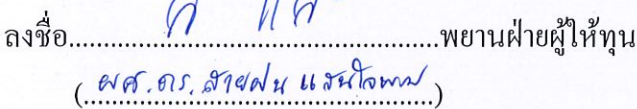 ลงชื่อ.......................................................พยานฝ่ายผู้ให้ทุน
(ผศ.ดร.สายฝน แสนใจพรม)